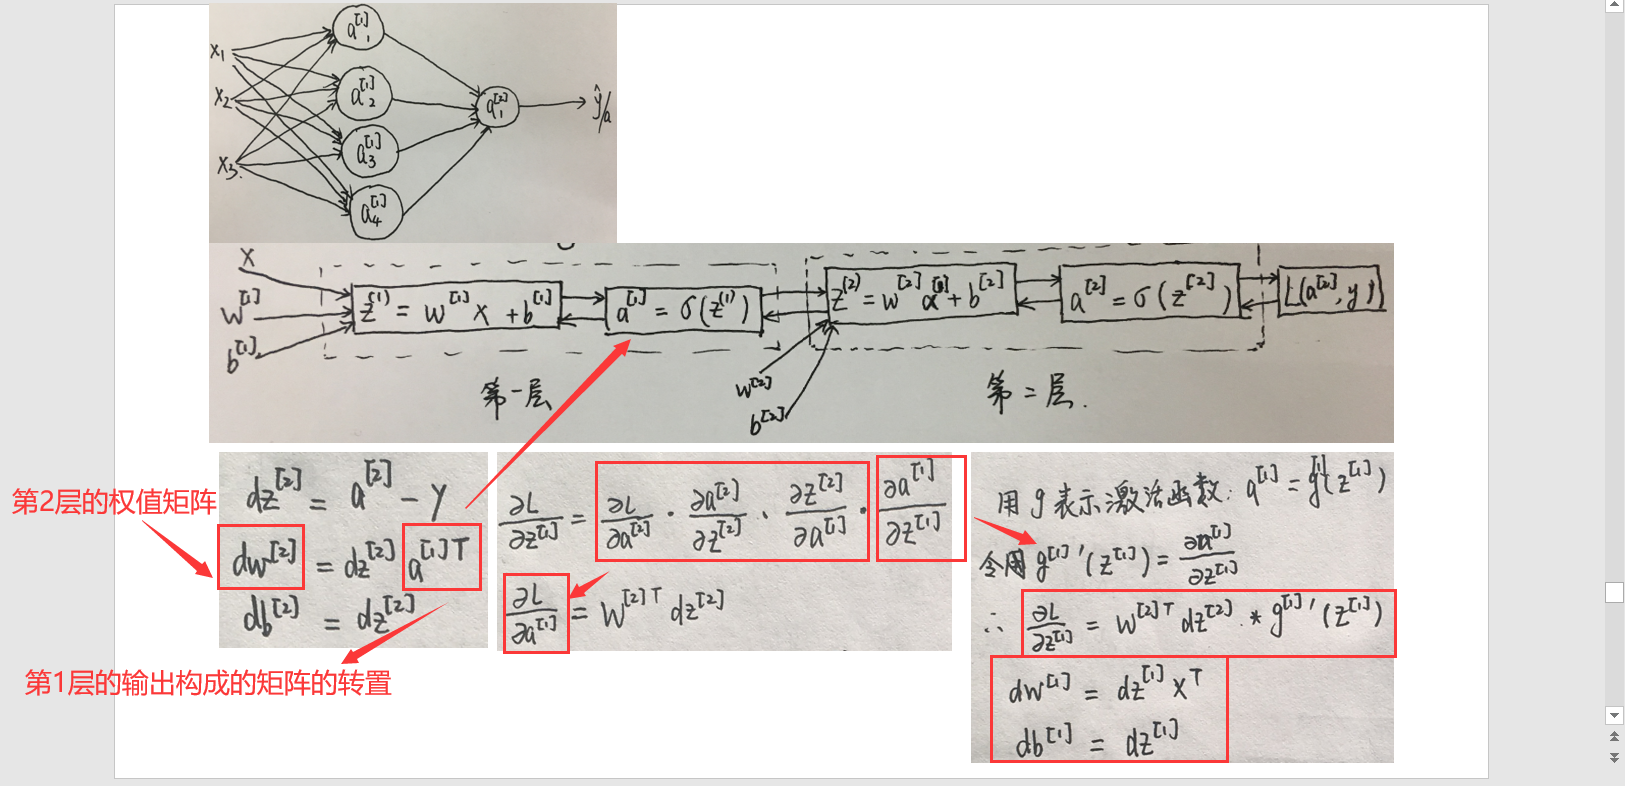 x₁
x₂
x₃
a₁^[1]
a₂^[1]
a₃^[1]
a₄^[1]
a₁^[2]
ŷ/a
X
w^[1]
b^[1]
z^(1) = w^[1] x + b^[1]
a^[1] = σ(z^(1))
z^(2) = w^[2] a^[1] + b^[2]
a^[2] = σ(z^[2])
L(a^[2], y)
w^[2]
b^[2]
第一层
第二层.
第2层的权值矩阵
dz^[2] = a^[2] - y
dw^[2] = dz^[2] a^[1]T
db^[2] = dz^[2]
第1层的输出构成的矩阵的转置
∂L/∂z^[1] = ∂L/∂a^[2] · ∂a^[2]/∂z^[2] · ∂z^[2]/∂a^[1] · ∂a^[1]/∂z^[1]
∂L/∂a^[1] = W^[2]T dz^[2]
用g表示激活函数: a^[1] = g^[1](z^[1])
令用 g^[1]'(z^[1]) = ∂a^[1]/∂z^[1]
∴ ∂L/∂z^[1] = W^[2]T dz^[2] * g^[1]'(z^[1])
dw^[1] = dz^[1] X^T
db^[1] = dz^[1]